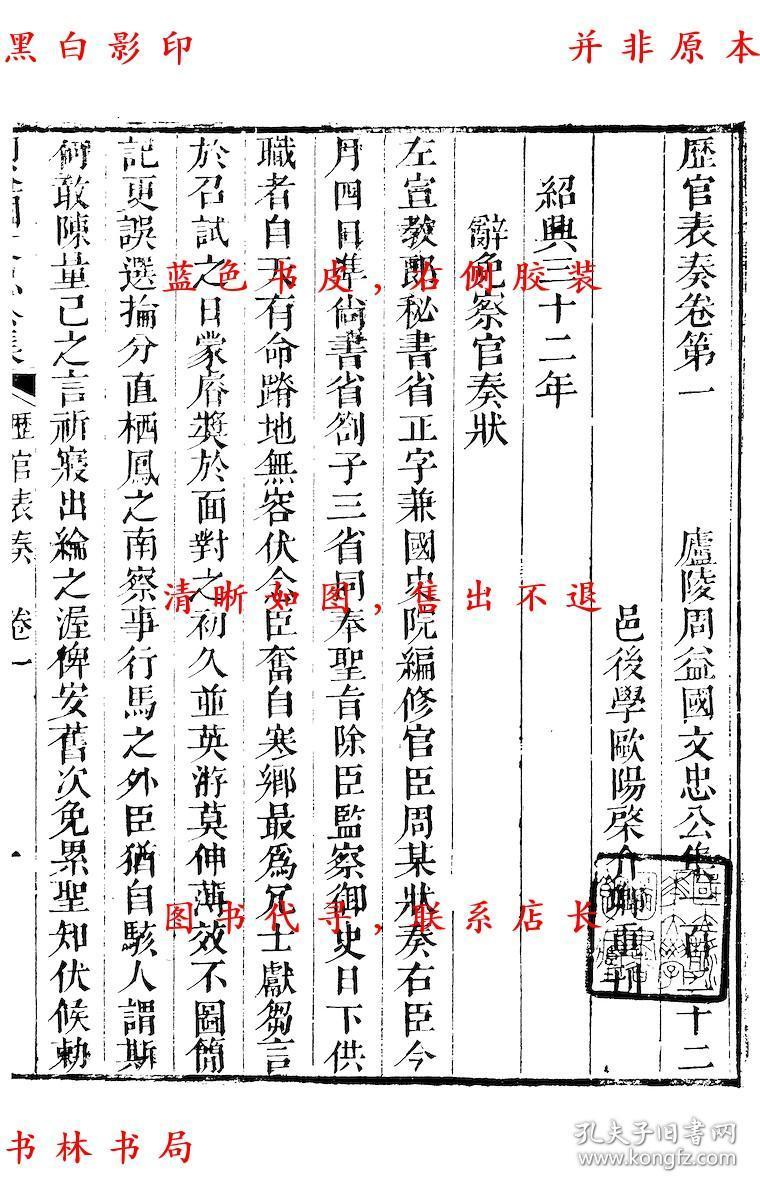 黑白影印
并非原本
歷官表奏卷第一 廬陵周益國文忠公集 百 十二
邑後學歐陽棨介卿重刊
紹興三十二年
辭免察官奏狀
左宣教郎秘書省正字兼國史院編修官臣周某狀奏右臣今
月四日準尚書省劄子三省同奉聖旨除臣監察御史日下供
職者自天有命蹐地無容伏念臣奮自寒鄉最爲冗士獻芻言
於召試之日蒙睿奬於面對之初久並英游莫伸薄效不圖簡
記更誤選掄分直栖鳳之南察事行馬之外臣猶自駭人謂斯
何敢陳量己之言祈寢出綸之渥俾安舊次免累聖知伏候勅
歷官表奏 卷一 一
蓝色书皮，右侧胶装
清晰如图，售出不退
图书代寻，联系店长
书林书局
孔夫子旧书网
www.kongfz.com